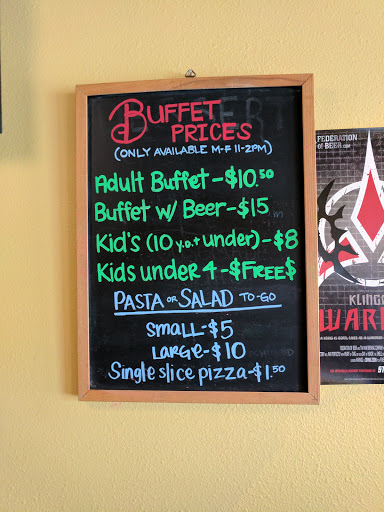 BUFFET
PRICES
(ONLY AVAILABLE M-F 11-2PM)
Adult Buffet-$10.50
Buffet w/ Beer-$15
Kid's (10 y.o.+ under)-$8
Kids under 4-$FREE$
PASTA or SALAD TO-GO
Small-$5
Large-$10
Single slice pizza-$1.50
FEDERATION
OF BEER.COM
KLING
WAR